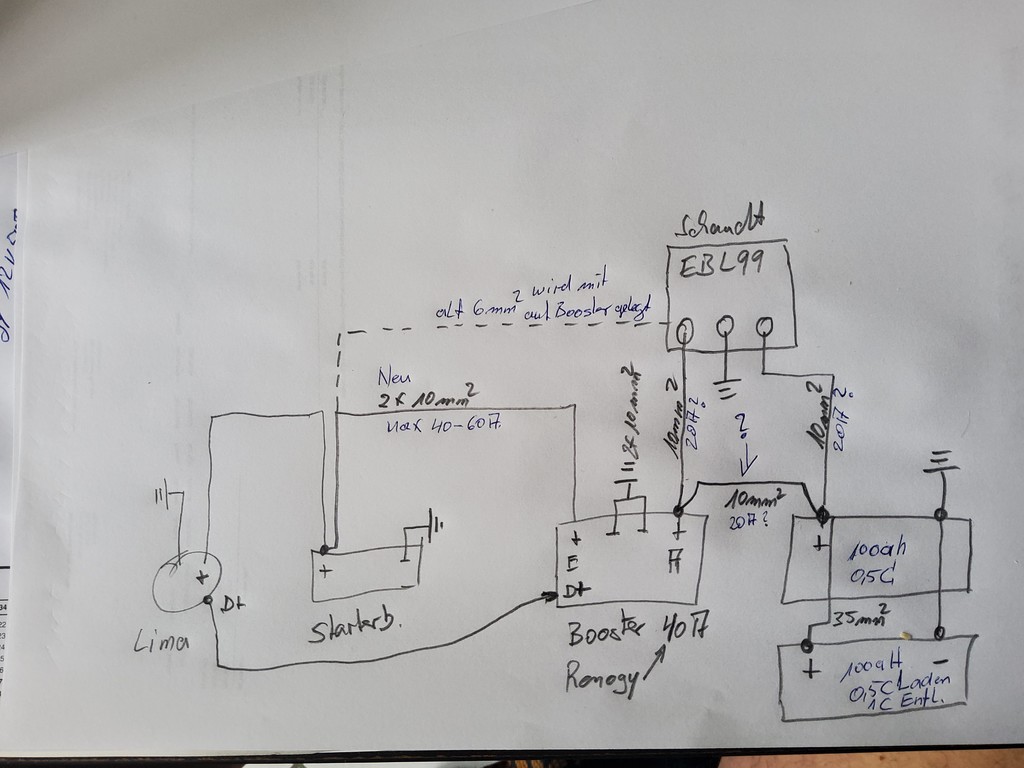 Schaudt
EBL99
alt 6mm² wird mit
auf Booster gelegt
Neu
2x 10mm²
max 40-60A
2x 10mm²
10mm²
20A?
?
10mm²
20A?
10mm²
20A?
+
D+
Lima
+
-
Starterb.
+
E
D+
+
A
Booster 40A
Renogy
+
100ah
0,5C
35mm²
+
-
100aH
0,5C Laden
1C Entl.
34
22
23